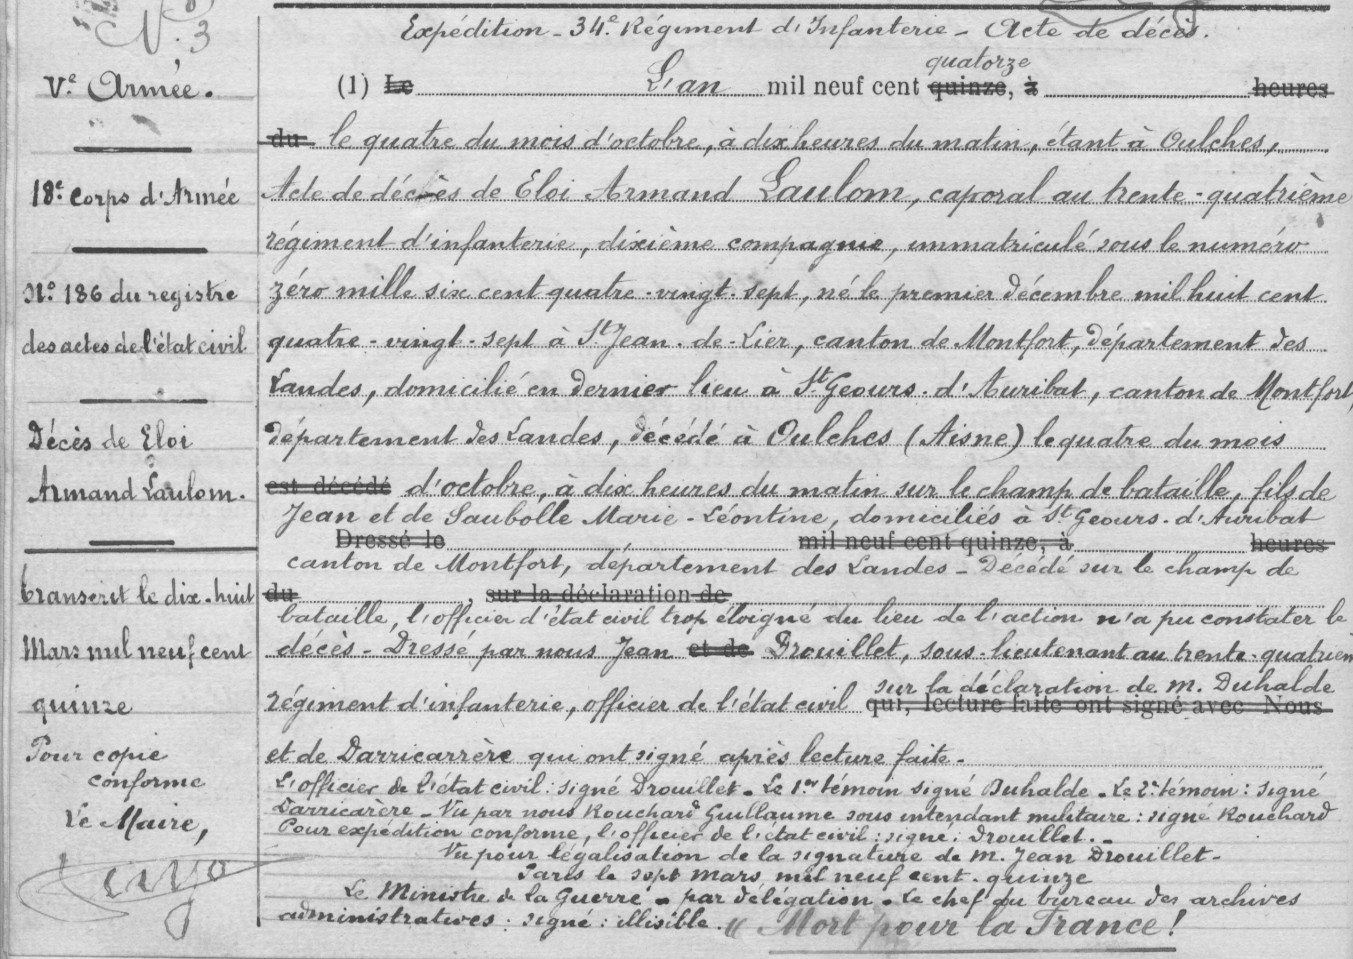 N. 3
Vᵉ Armée.
18ᵉ Corps d'Armée
Nº 186 du registre
des actes de l'état civil
Décès de Eloi
Armand Laulom.
Transcrit le dix-huit
Mars mil neuf cent
quinze
Pour copie
conforme
Le Maire,
Expédition - 34ᵉ Régiment d'Infanterie - Acte de décès.
quatorze
(1) Le L'an mil neuf cent quinze, à heures
du le quatre du mois d'octobre, à dix heures du matin, étant à Oulches,
Acte de décès de Eloi Armand Laulom, caporal au trente-quatrième
régiment d'infanterie, dixième compagnie, immatriculé sous le numéro
zéro mille six cent quatre-vingt-sept, né le premier décembre mil huit cent
quatre-vingt-sept à St Jean-de-Lier, canton de Montfort, département des
Landes, domicilié en dernier lieu à St Geours-d'Auribat, canton de Montfort,
département des Landes, décédé à Oulches (Aisne) le quatre du mois
est décédé d'octobre, à dix heures du matin sur le champ de bataille, fils de
Jean et de Saubolle Marie-Léontine, domiciliés à St Geours-d'Auribat
Dressé le mil neuf cent quinze, à heures
canton de Montfort, département des Landes - Décédé sur le champ de
du , sur la déclaration de
bataille, l'officier d'état civil trop éloigné du lieu de l'action n'a pu constater le
décès - Dressé par nous Jean et de Drouillet, sous-lieutenant au trente-quatrièm
sur la déclaration de m. Duhalde
régiment d'infanterie, officier de l'état civil qui, lecture faite ont signé avec Nous
et de Darricarrère qui ont signé après lecture faite.
L'officier de l'état civil : signé Drouillet - Le 1er témoin signé Duhalde - Le 2e témoin : signé
Darricarère - Vu par nous Rouchard Guillaume sous intendant militaire : signé Rouchard
Pour expédition conforme, l'officier de l'état civil : signé : Drouillet.-
Vu pour légalisation de la signature de m. Jean Drouillet-
Paris le sept mars mil neuf cent-quinze
Le Ministre de la Guerre - par délégation - Le chef du bureau des archives
administratives : signé : illisible. " Mort pour la France !